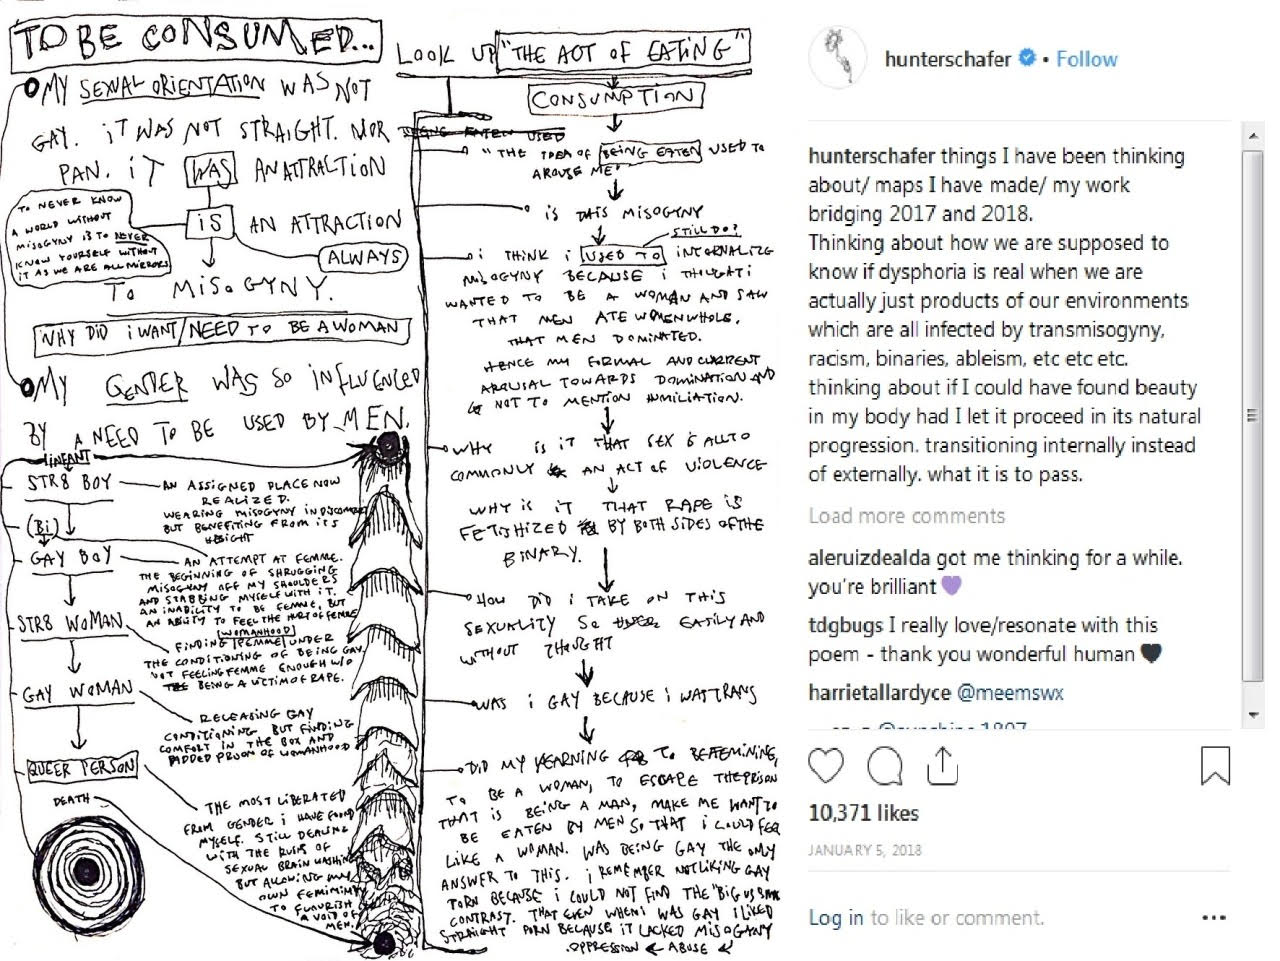 TO BE CONSUMED...
MY SEXUAL ORIENTATION WAS NOT
GAY. iT WAS NOT STRAIGHT. NOR
PAN. iT WAS AN ATTRACTION
iS AN ATTRACTION
ALWAYS
TO MiSOGYNY.
TO NEVER KNOW
A WORLD WITHOUT
MISOGYNY IS TO NEVER
KNOW YOURSELF WITHOUT
IT AS WE ARE ALL MIRRORS
WHY DID i WANT/NEED TO BE A WOMAN
MY GENDER WAS SO INFLUENCED
BY A NEED TO BE USED BY MEN.
INFANT
STR8 BOY
AN ASSIGNED PLACE NOW
REALIZED.
WEARING MISOGYNY IN DISCOMFORT
BUT BENEFITING FROM ITS
HEIGHT
(Bi)
GAY BOY
AN ATTEMPT AT FEMME.
THE BEGINNING OF SHRUGGING
MISOGYNY OFF MY SHOULDERS
AND STABBING MYSELF WITH IT.
AN INABILITY TO BE FEMME, BUT
AN ABILITY TO FEEL THE HURT OF FEMME
STR8 WOMAN
WOMANHOOD
FINDING FEMME UNDER
THE CONDITIONING OF BEING GAY
NOT FEELING FEMME ENOUGH W/O
BEING A VICTIM OF RAPE.
GAY WOMAN
RELEASING GAY
CONDITIONING BUT FINDING
COMFORT IN THE BOX AND
ADDED PROOF OF WOMANHOOD
QUEER PERSON
THE MOST LIBERATED
FROM GENDER i HAVE FOUND
MYSELF. STILL DEALING
WITH THE RUINS OF
SEXUAL BRAIN WASHING
BUT ALLOWING MY
OWN FEMININITY
TO FLOURISH
A VOID OF
MEN.
DEATH
LOOK UP "THE ACT OF EATING"
CONSUMPTION
BEING EATEN USED
"THE IDEA OF BEING EATEN USED TO
AROUSE ME"
IS THIS MISOGYNY
STILL DO?
i THINK i USED TO INTERNALIZE
MISOGYNY BECAUSE i THOUGHT i
WANTED TO BE A WOMAN AND SAW
THAT MEN ATE WOMEN WHOLE.
THAT MEN DOMINATED.
HENCE MY FORMAL AND CURRENT
AROUSAL TOWARDS DOMINATION AND
NOT TO MENTION HUMILIATION.
WHY IS IT THAT SEX IS ALL TO
COMMONLY AN ACT OF VIOLENCE
WHY IS IT THAT RAPE IS
FETISHIZED BY BOTH SIDES OF THE
BINARY.
HOW DID i TAKE ON THIS
SEXUALITY SO EASILY AND
WITHOUT THOUGHT
WAS i GAY BECAUSE i WAS TRANS
DID MY YEARNING TO BE FEMININE,
TO BE A WOMAN, TO ESCAPE THE PRISON
THAT IS BEING A MAN, MAKE ME WANT TO
BE EATEN BY MEN SO THAT i COULD FEEL
LIKE A WOMAN. WAS BEING GAY THE ONLY
ANSWER TO THIS. i REMEMBER NOT LIKING GAY
PORN BECAUSE i COULD NOT FIND THE "BIG VS SMALL
CONTRAST. THAT EVEN WHEN i WAS GAY i LIKED
STRAIGHT PORN BECAUSE IT LACKED MISOGYNY
OPPRESSION ABUSE
hunterschafer • Follow
hunterschafer things I have been thinking
about/ maps I have made/ my work
bridging 2017 and 2018.
Thinking about how we are supposed to
know if dysphoria is real when we are
actually just products of our environments
which are all infected by transmisogyny,
racism, binaries, ableism, etc etc etc.
thinking about if I could have found beauty
in my body had I let it proceed in its natural
progression. transitioning internally instead
of externally. what it is to pass.
Load more comments
aleruizdealda got me thinking for a while.
you're brilliant 💜
tdgbugs I really love/resonate with this
poem - thank you wonderful human 🖤
harrietallardyce @meemswx
10,371 likes
JANUARY 5, 2018
Log in to like or comment.